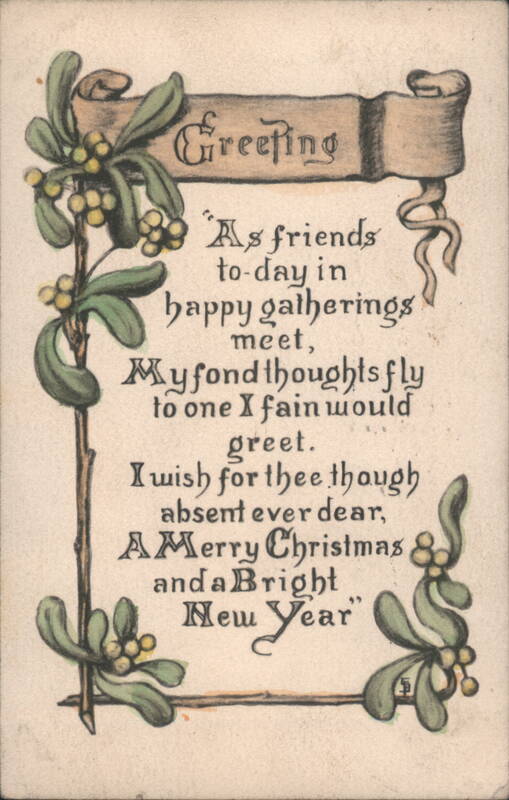 Greeting
"As friends
to-day in
happy gatherings
meet,
My fond thoughts fly
to one I fain would
greet.
I wish for thee though
absent ever dear,
A Merry Christmas
and a Bright
New Year"